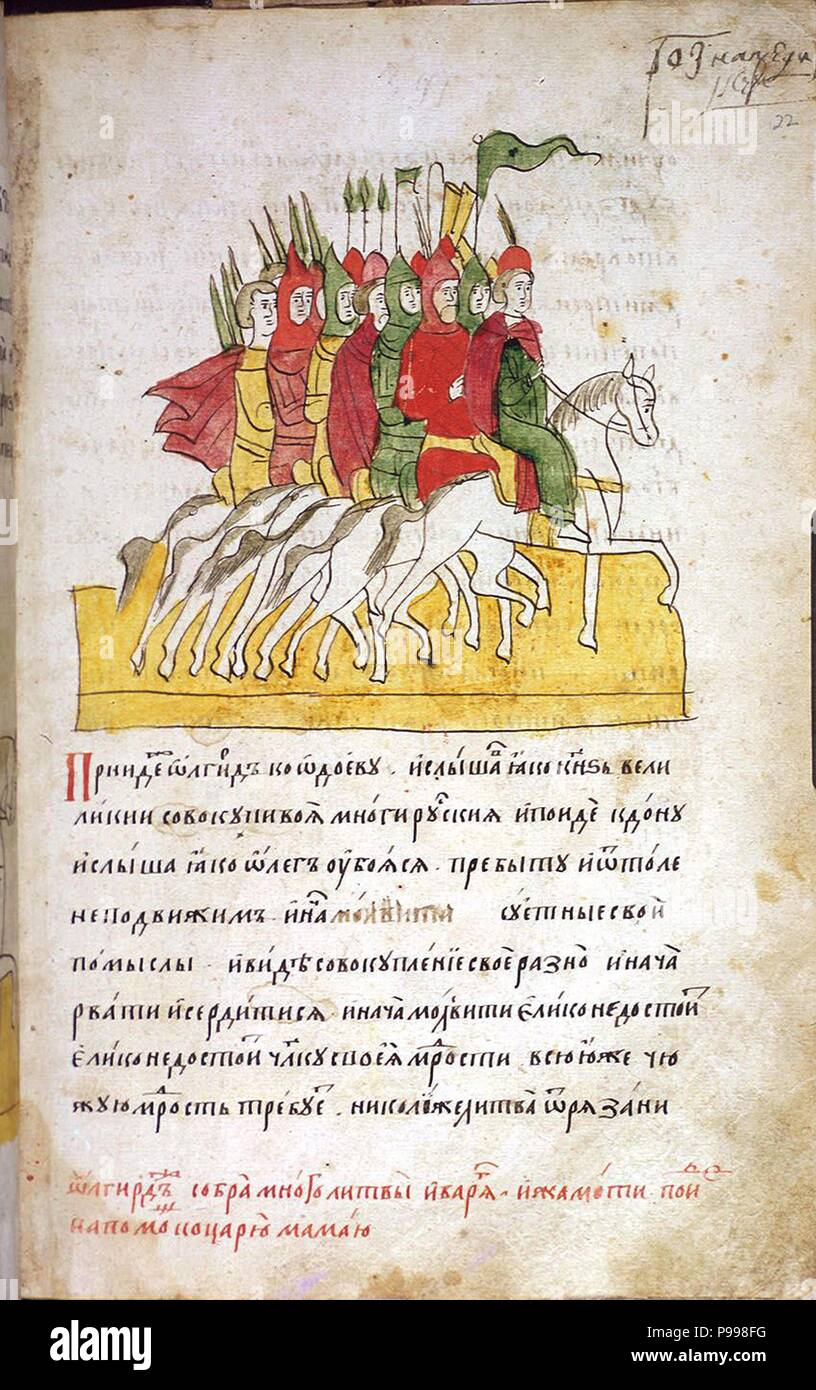 22
Прииде ѿлгирдъ ко ѿдоеву . и слыша ꙗко кнѕь вели
ликии совокупи воꙗ многи рускиꙗ и поиде к дону
и слыша ꙗко ѿлегъ оубоꙗсꙗ . пребыту и ѿтоле
неподвижимъ . и нача суетные свои
помыслы . и видѣ совокупленїе свое разно и нача
рвати и сердитисꙗ и нача молвити елико недостои
елико недостои члку своеꙗ мрости всюю же чю
жую мрость требуе . николиже литва ѿ рязани
ѿлгирдъ собра много литвы и варꙗ . и жамоти пои
на помощ ко царю мамаю
alamy
Image ID: P998FG
www.alamy.com